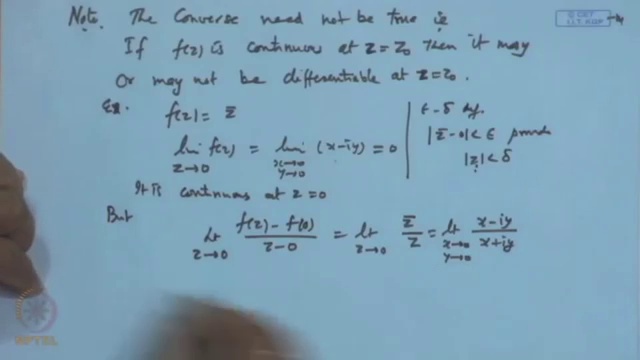 Note. The Converse need not be true ie
© CET
I.I.T. KGP
If f(z) is continuous at z=z₀ then it may
Or may not be differentiable at z=z₀.
Ex. f(z) = z̄
ε-δ def.
lim z→0 f(z) = lim x→0 y→0 (x-iy) = 0
|z̄-0| < ε provided
|z| < δ
It is continuous at z=0
But
lt z→0 (f(z) - f(0))/(z-0) = lt z→0 z̄/z = lt x→0 y→0 (x-iy)/(x+iy)
NPTEL